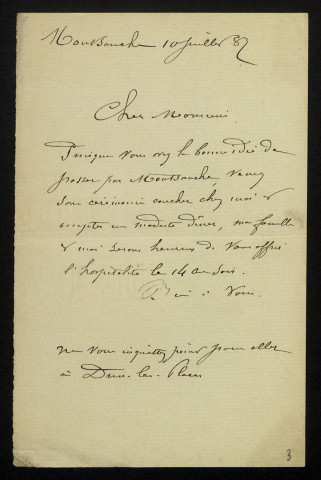 Montsauche 10 juillet 87
Cher Monsieur
Puisque vous avez la bonne idée de
passer par Montsauche, venez
sans cérémonie coucher chez moi &
accepter un modeste dîner, ma famille
& moi serons heureux de vous offrir
l'hospitalité le 14 au soir.
à vous.
ne vous inquiétez point pour aller
à Dun-les-Places
3